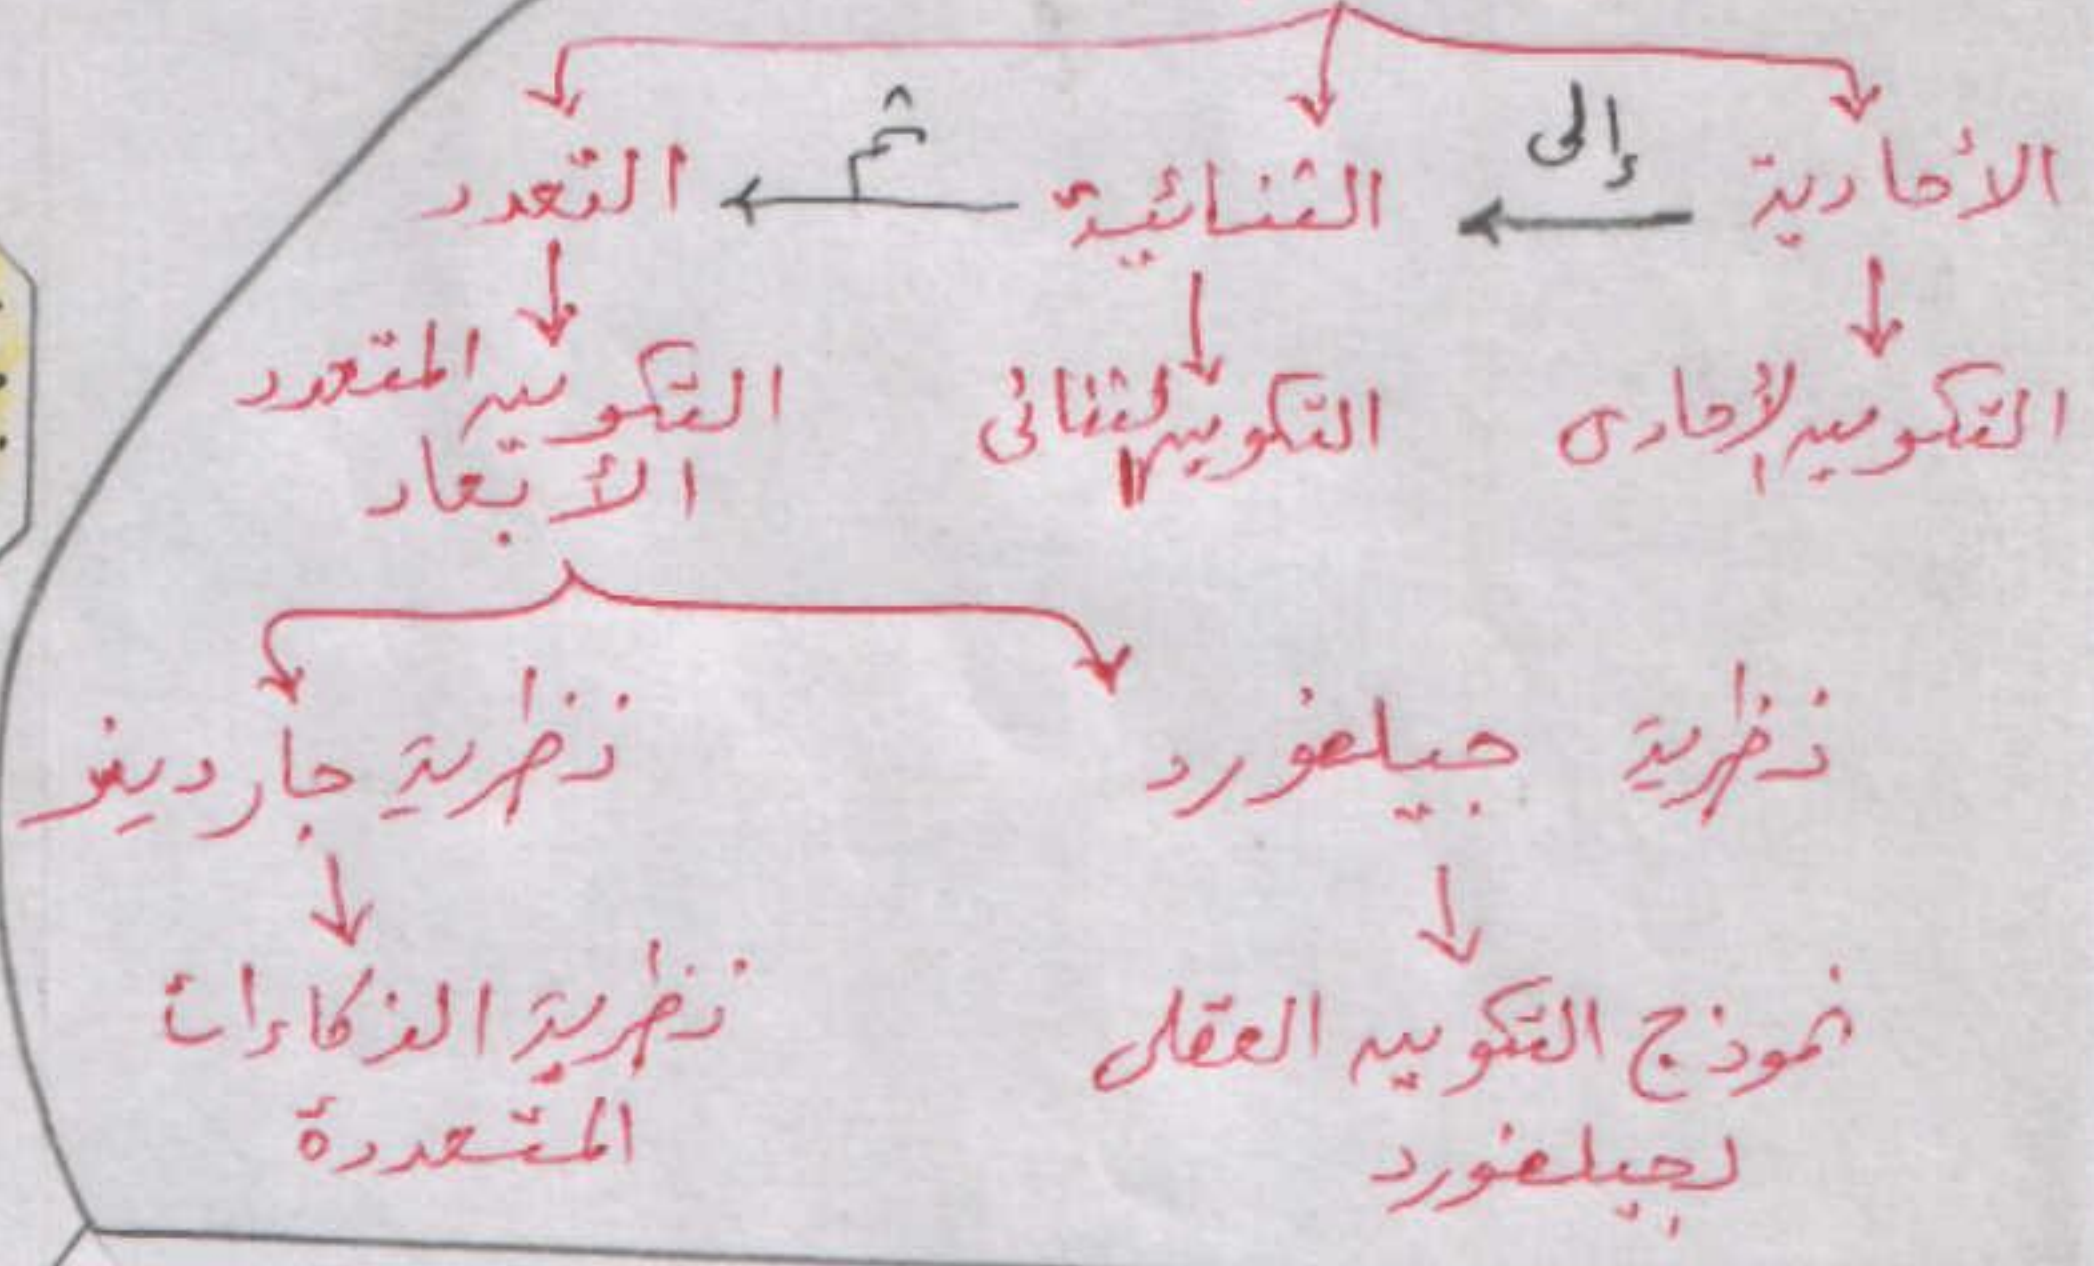 الأحادية إلى الثنائية ثم التعدد
التكوين الأحادى
التكوين الثنائى
التكوين المتعدد
الأبعاد
نظرية جيلفورد
نظرية جاردينر
نموذج التكوين العقلى
لجيلفورد
نظرية الذكاءات
المتعددة